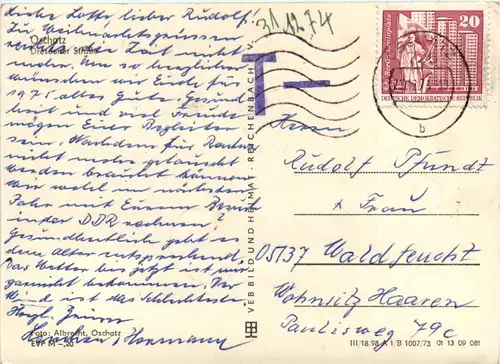 Liebe Lotte, lieber Rudolf!
31.12.74
Zu Weihnachtsgrüssen
Oschatz
Dresdener Straße
reichte die Zeit nicht
mehr. Um so herzlicher
wünschen wir Euch für
1975 alles Gute: Gesund
heit und viel Freude
mögen Eure Begleiter
sein. Nachdem für Rentner
nicht mehr getauscht
werden braucht können
wir wohl im nächsten
Jahr mit Eurem Besuch
in der DDR rechnen?
Gesundheitlich geht es
dem Alter entsprechend.
Das Wetter bis jetzt ist uns
gut bekommen. Der
Wind ist das Schlechteste.
Herzl. Grüsse
Hermann
Foto: Albrecht, Oschatz
EVP M –,20
VEB BILD UND HEIMAT REICHENBACH I. V.
T
20
DEUTSCHE DEMOKRATISCHE REPUBLIK
b
Herrn
Rudolf Pfundt
+ Frau
05137 Waldfeucht
Wohnsitz Haaren
Paulisweg 79c
III/18.98 A 1/B 1007/73 01 13 09 081